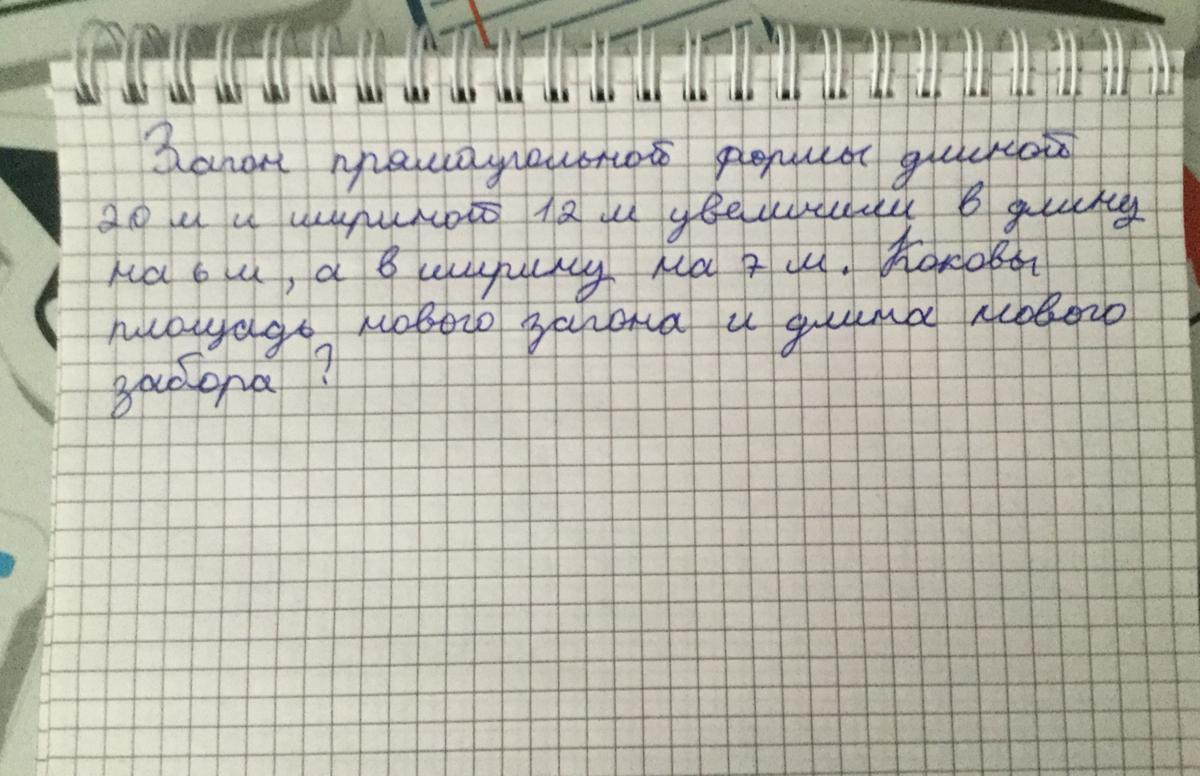 Загон прямоугольной формы длиной
20 м и шириной 12 м увеличили в длину
на 6 м, а в ширину на 7 м. Каковы
площадь нового загона и длина нового
забора?